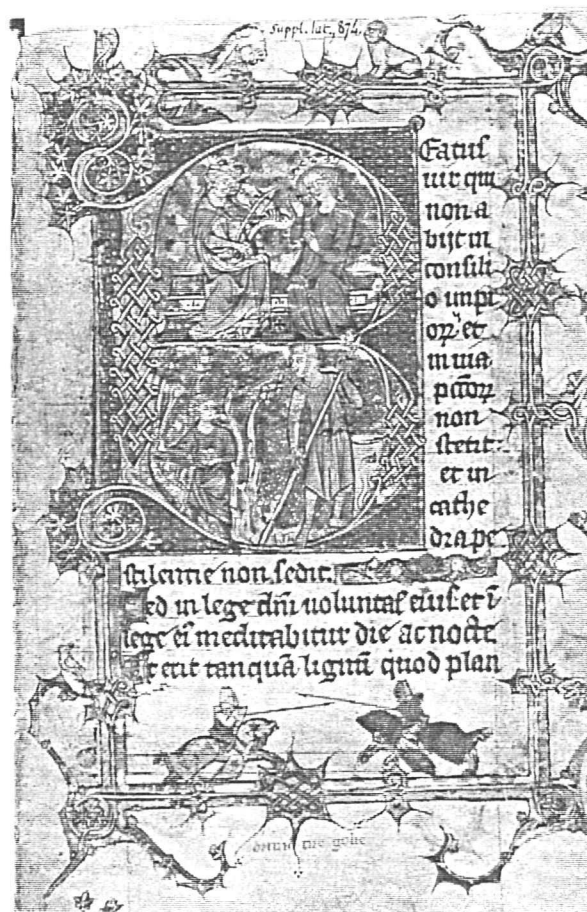 Suppl. lat., 874.
Eatus
uir qui
non a
bijt in
consili
o impi
oꝝ et
in uia
pc̄c̄oꝝ
non
stetit:
et in
cathe
dra pe
stilentie non sedit.
Sed in lege dn̄i uoluntas eius et ī
lege eī meditabitur die ac nocte
Et erit tanquā lignū quod plan